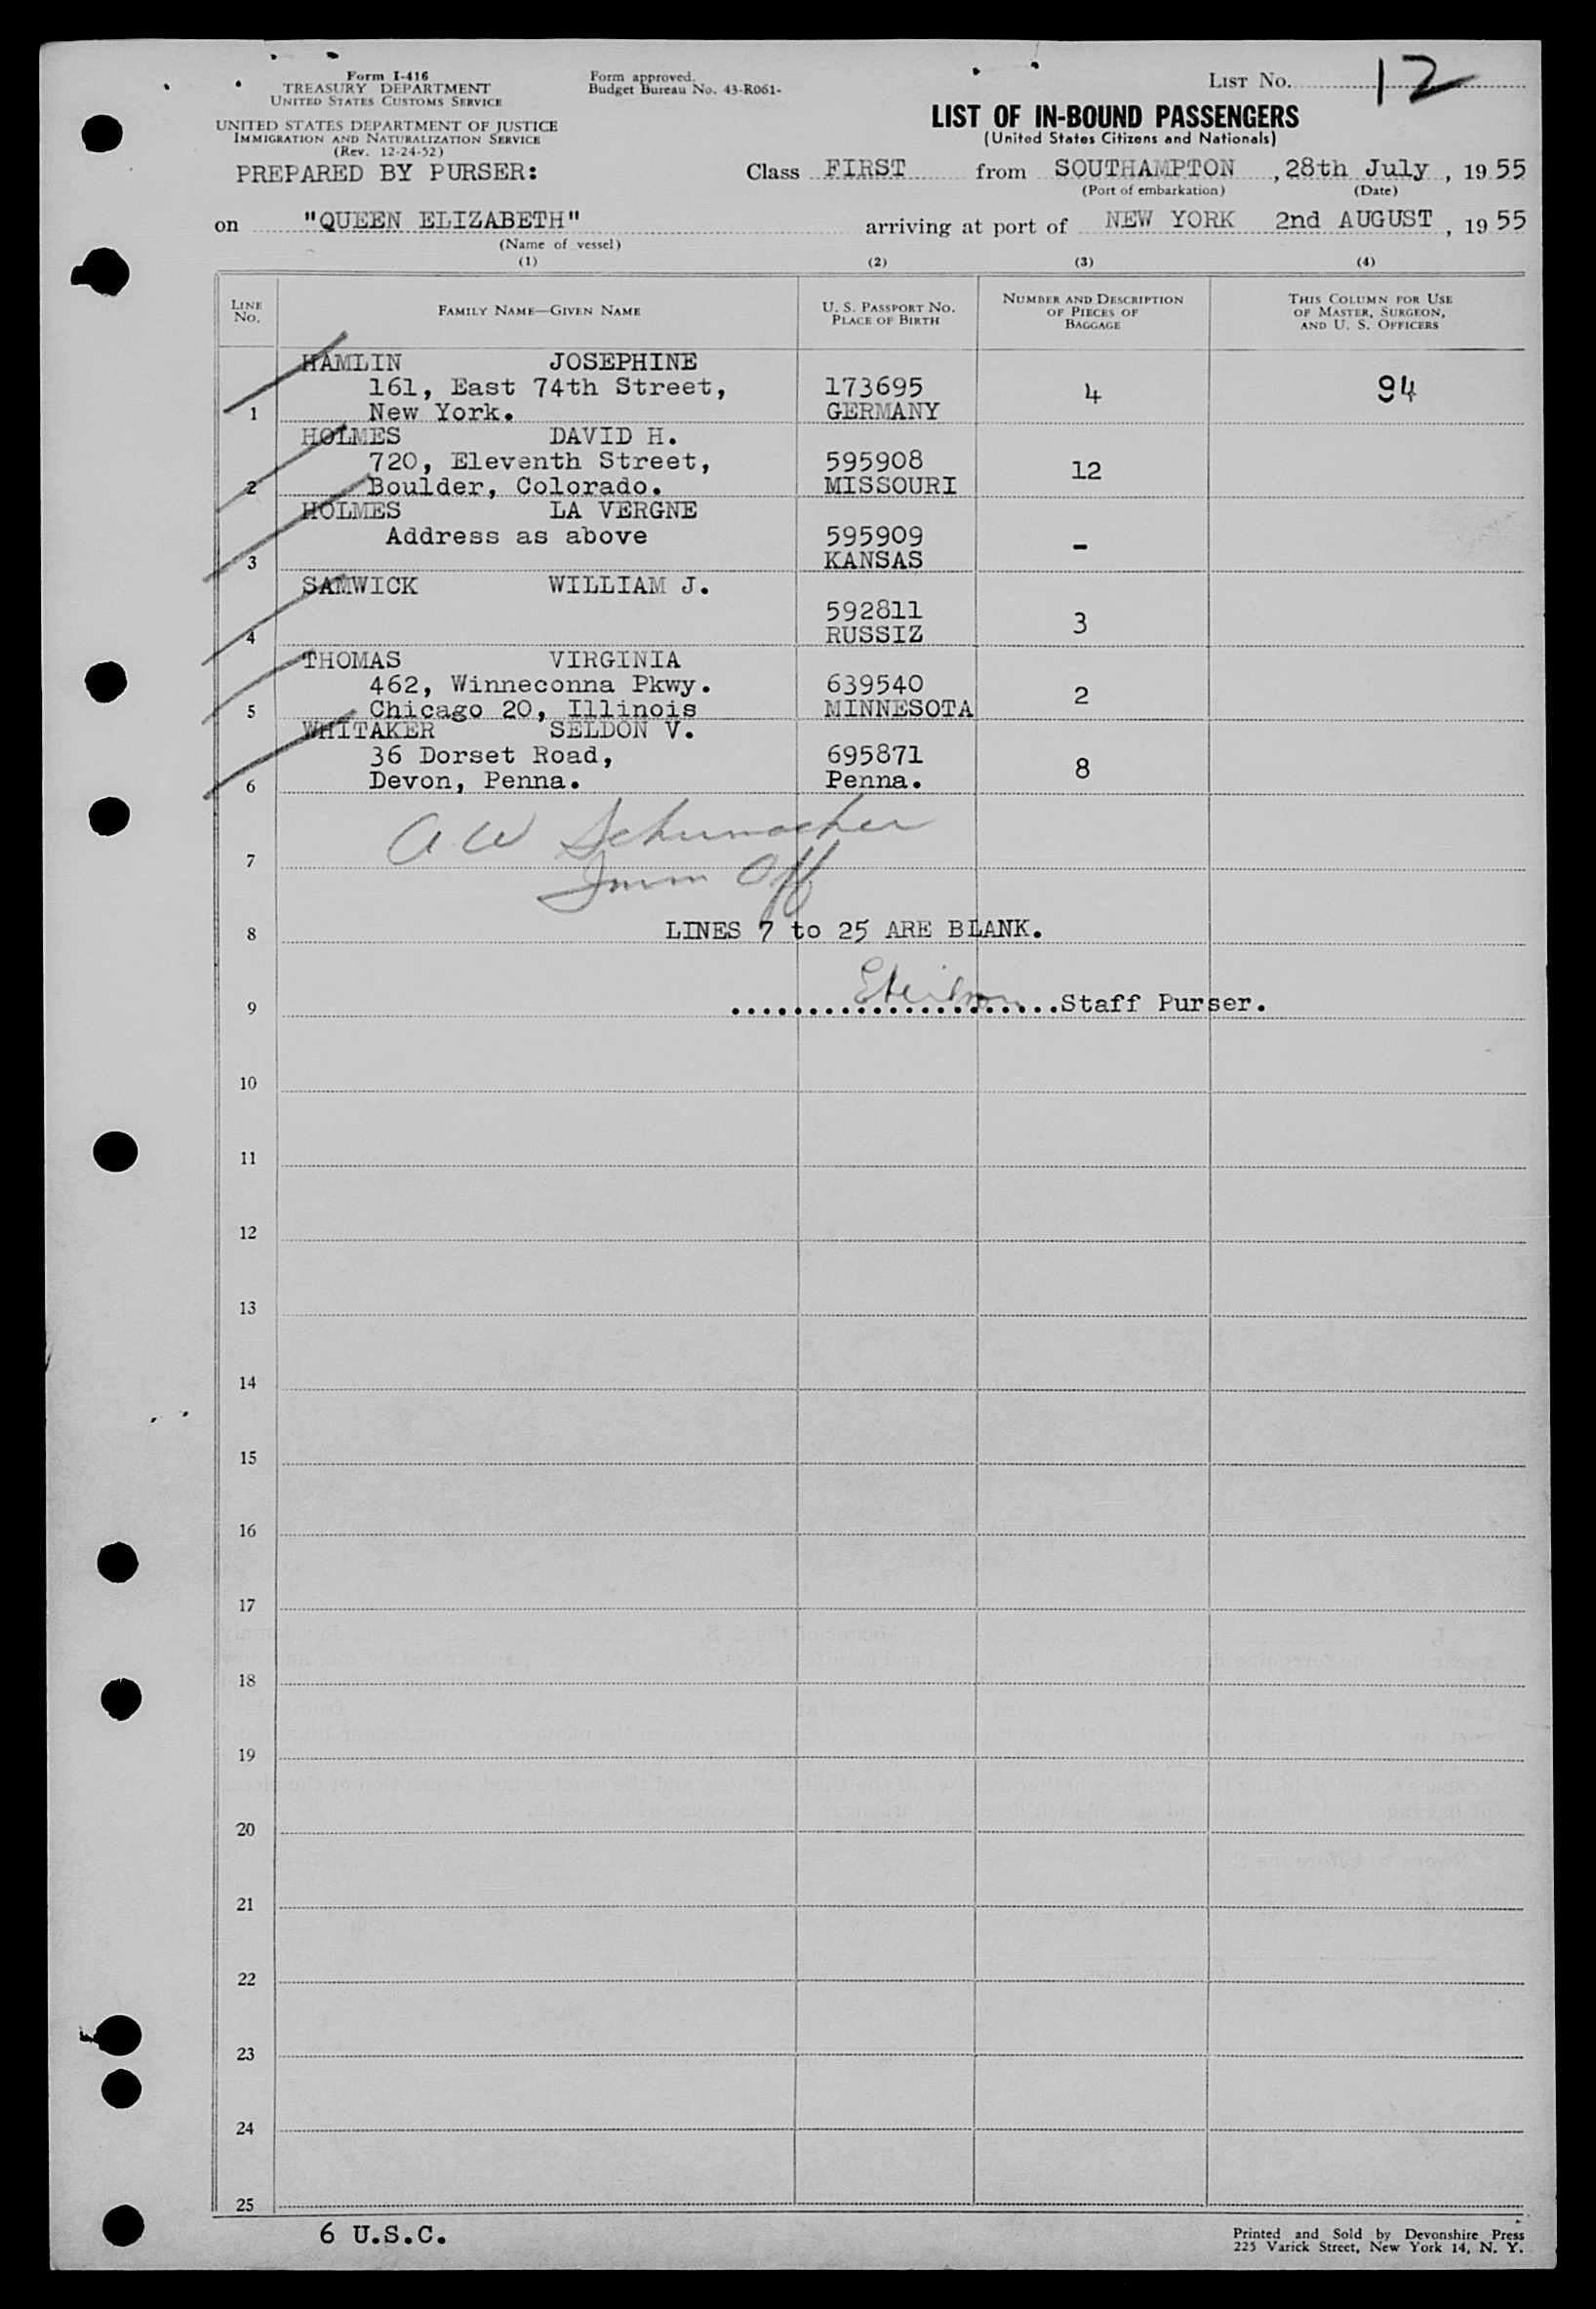 Form I-416
TREASURY DEPARTMENT
UNITED STATES CUSTOMS SERVICE
UNITED STATES DEPARTMENT OF JUSTICE
IMMIGRATION AND NATURALIZATION SERVICE
(Rev. 12-24-52)
PREPARED BY PURSER:
Form approved.
Budget Bureau No. 43-R061-
LIST No. 12
LIST OF IN-BOUND PASSENGERS
(United States Citizens and Nationals)
Class FIRST from SOUTHAMPTON , 28th July , 19 55
(Port of embarkation) (Date)
on "QUEEN ELIZABETH" arriving at port of NEW YORK 2nd AUGUST , 19 55
(Name of vessel)
(1) (2) (3) (4)
LINE No. FAMILY NAME—GIVEN NAME U. S. PASSPORT NO. PLACE OF BIRTH NUMBER AND DESCRIPTION OF PIECES OF BAGGAGE THIS COLUMN FOR USE OF MASTER, SURGEON, AND U. S. OFFICERS
HAMLIN JOSEPHINE
161, East 74th Street, 173695 4 94
1 New York. GERMANY
HOLMES DAVID H.
720, Eleventh Street, 595908 12
2 Boulder, Colorado. MISSOURI
HOLMES LA VERGNE
Address as above 595909 -
3 KANSAS
SAMWICK WILLIAM J.
592811 3
4 RUSSIZ
THOMAS VIRGINIA
462, Winneconna Pkwy. 639540 2
5 Chicago 20, Illinois MINNESOTA
WHITAKER SELDON V.
36 Dorset Road, 695871 8
6 Devon, Penna. Penna.
A W Schumacher
7
Imm Off
8 LINES 7 to 25 ARE BLANK.
9 ....................Staff Purser.
10
11
12
13
14
15
16
17
18
19
20
21
22
23
24
25
6 U.S.C.
Printed and Sold by Devonshire Press
225 Varick Street, New York 14, N. Y.